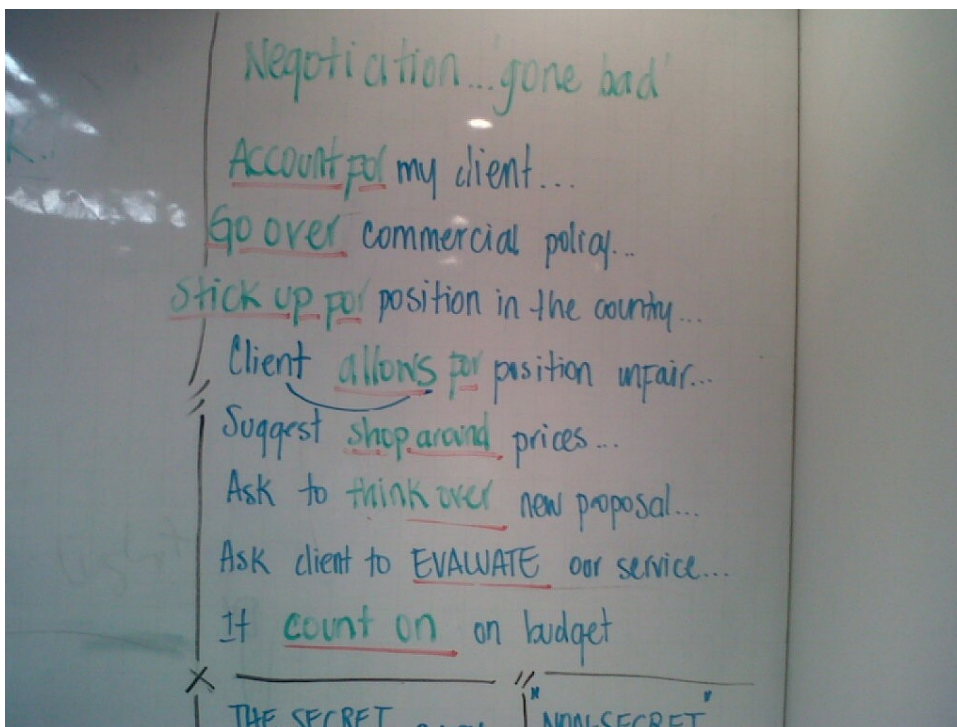 Negotiation...'gone bad'
Account for my client...
Go over commercial policy...
Stick up for position in the country...
Client allows for position unfair...
Suggest shop around prices...
Ask to think over new proposal...
Ask client to EVALUATE our service...
It count on on budget
THE SECRET
"NON-SECRET"